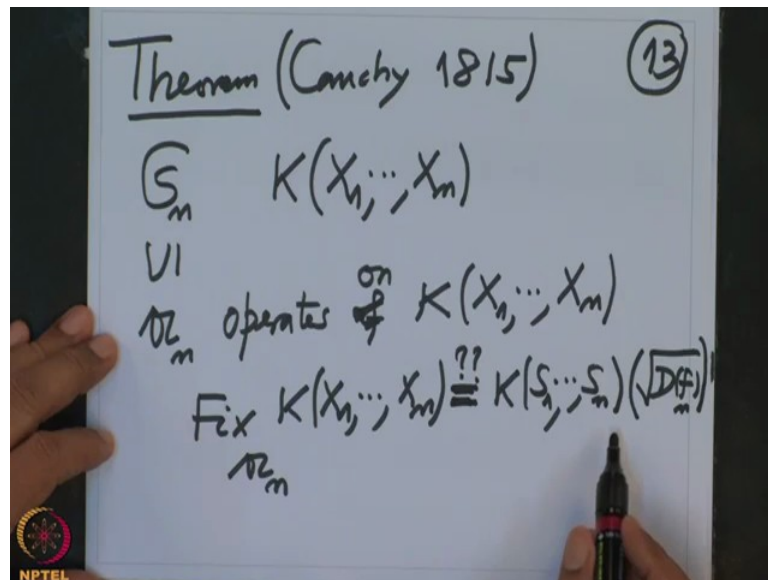 Theorem (Cauchy 1815) 13
𝔖ₙ K(X₁,…,Xₙ)
UI
𝔄ₙ operates on K(X₁,…,Xₙ)
Fix K(X₁,…,Xₙ) =?? K(S₁,…,Sₙ)(√D(fₙ))
𝔄ₙ
NPTEL